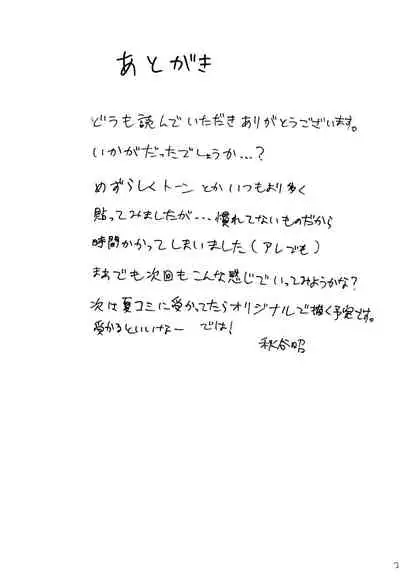 あとがき
どうも読んでいただきありがとうございます。
いかがだったでしょうか…?
めずらしくトーンとかいつもより多く
貼ってみましたが…慣れてないものだから
時間かかってしまいました(アレでも)
まぁでも次回もこんな感じでいってみようかな?
次は夏コミに受かってたらオリジナルで描く予定です。
受かるといいなー では!
秋谷昭